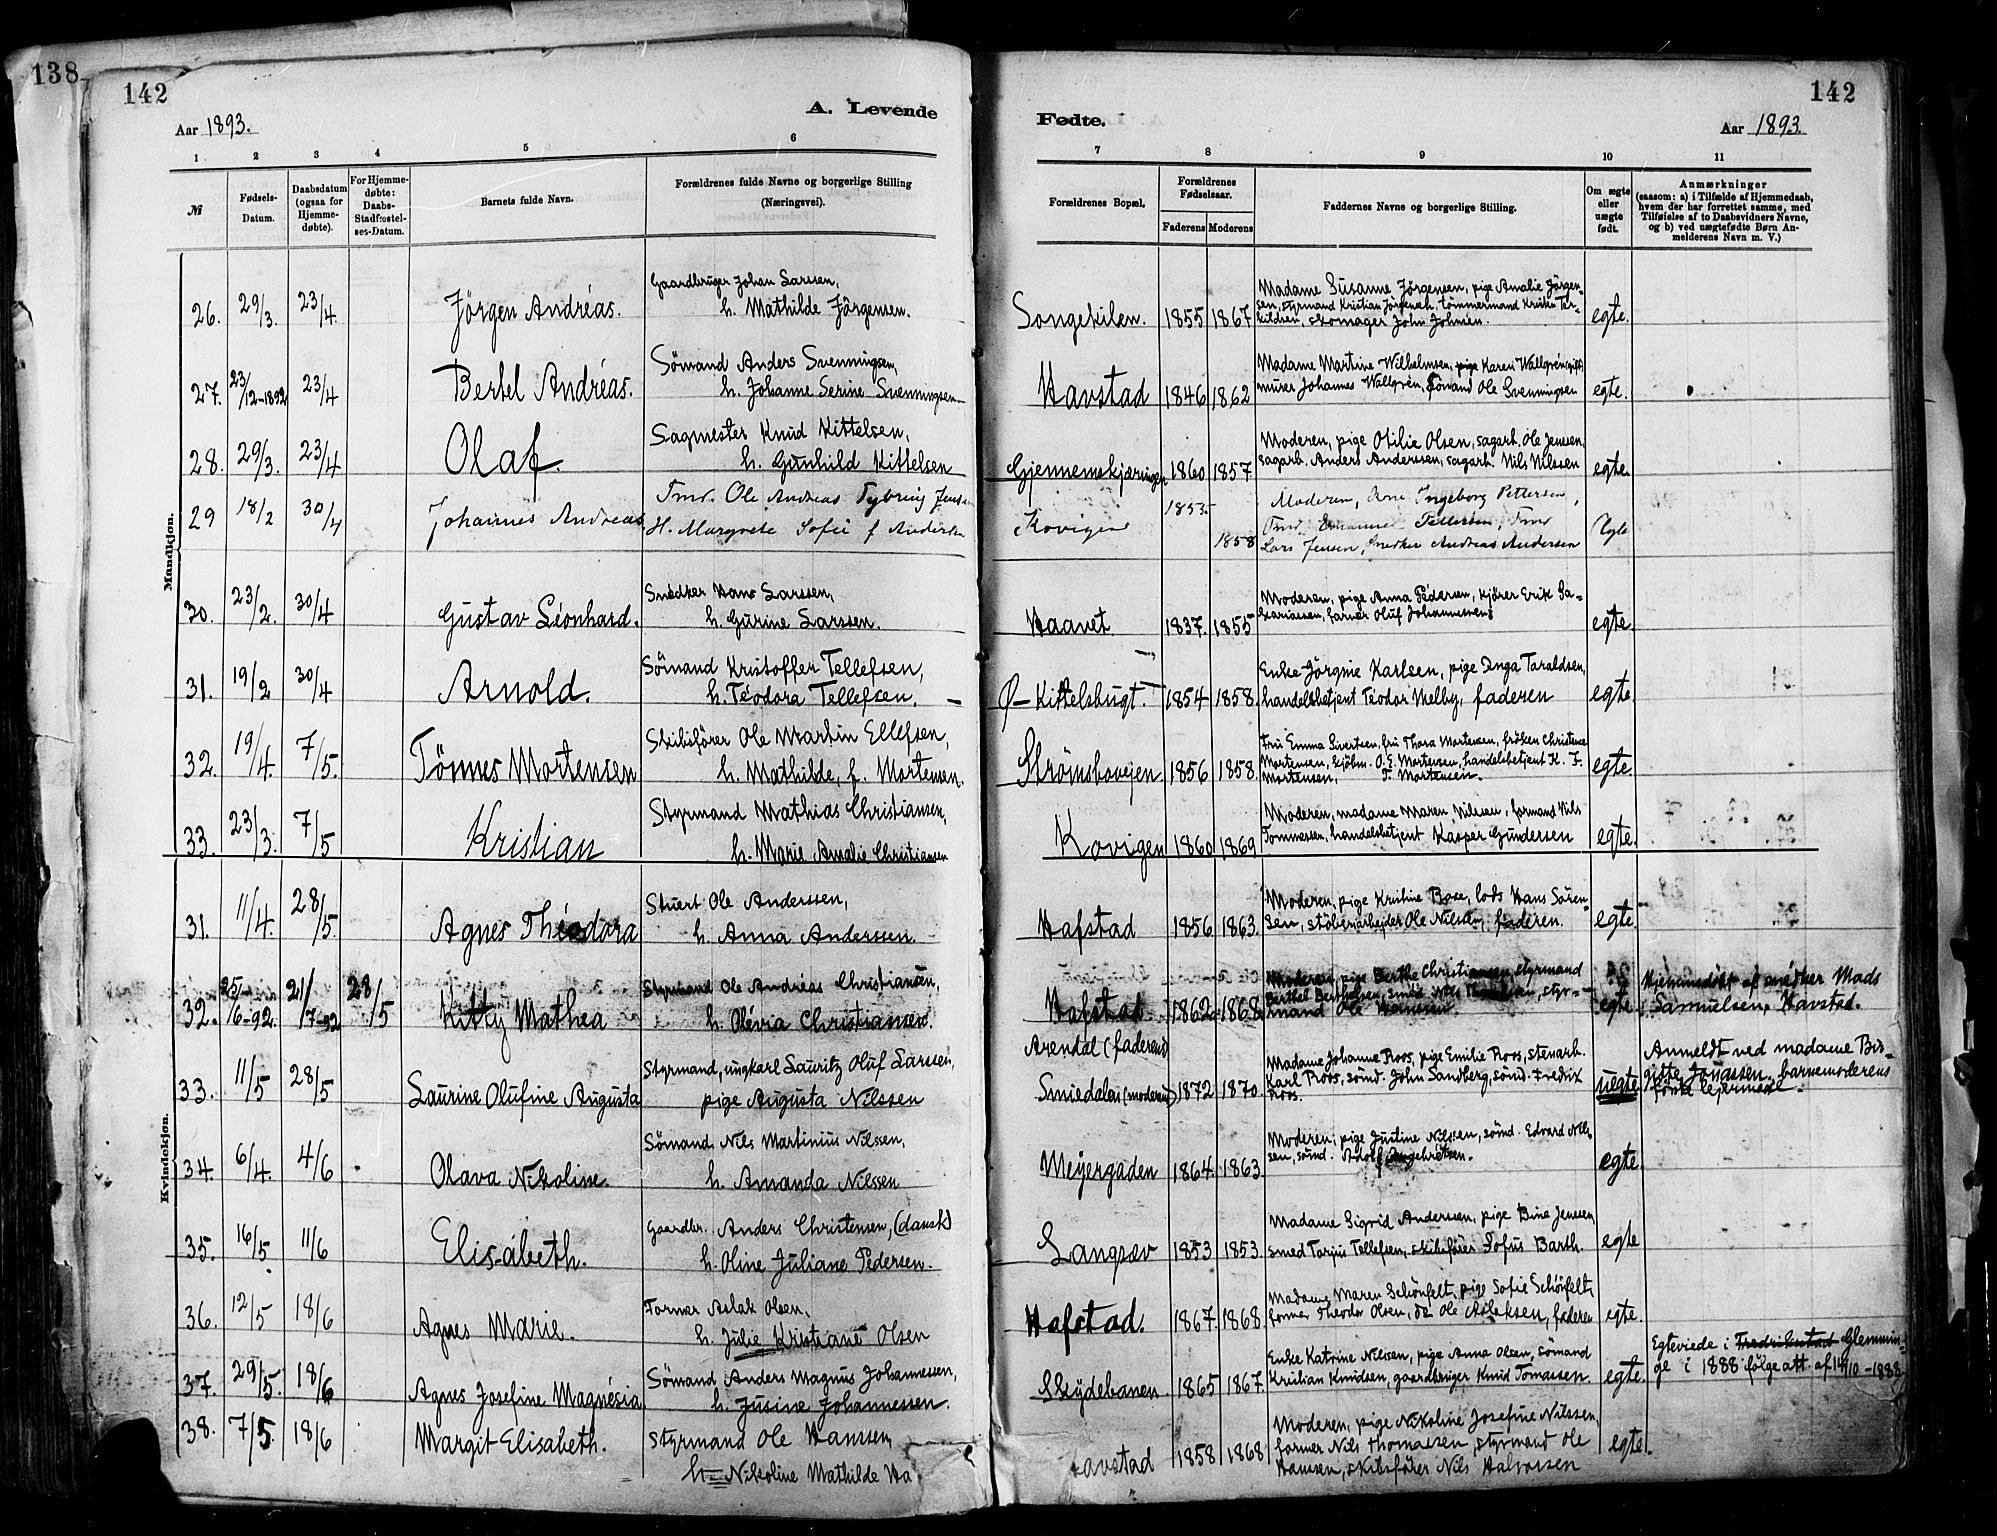 138
142
142
A. Levende
Fødte.
Aar 1893.
Aar 1893.
1 2 3 4 5 6 7 8 9 10 11
№
Fødsels-Datum.
Daabsdatum (ogsaa for Hjemme-døbte).
For Hjemme-døbte: Daabs-Stadfæstel-ses-Datum.
Barnets fulde Navn.
Forældrenes fulde Navne og borgerlige Stilling (Næringsvei).
Forældrenes Bopæl.
Forældrenes Fødselsaar.
Faderens Moderens
Faddernes Navne og borgerlige Stilling.
Om ægte eller uægte født.
Anmærkninger
(saasom: a) i Tilfælde af Hjemmedaab, hvem der har forrettet samme, med Tilføielse af to Daabsvidners Navne, og b) ved uægtefødte Børn An-melderens Navn m. V.)
Mandkjøn.
26. 29/3. 23/4. Jörgen Andréas. Gaardbruger Johan Larssen,
h. Mathilde Jörgensen.
Songekilen. 1855 1867
Madame Susanne Jörgensen, pige Amalie Jörgen-
sen, styrmand Kristian Jörgensen, tömmermand Kristen Ter-
kildsen, skomager John Johnsen.
egte.
27. 23/12-1892 23/4 Bertel Andréas. Sömand Anders Svenningsen,
h. Johanne Serine Svenningsen
Havstad 1846 1862
Madame Martine Wilhelmsen, pige Karen Wallgrén (gift)
murer Johannes Wallgrén, sömand Ole Svenningsen
egte.
28. 29/3. 23/4 Olaf. Sagmester Knud Kittelsen,
h. Gunhild Kittelsen
Gjennemskjæringen 1860 1857
Moderen, pige Otilie Olsen, sagarb. Ole Jenssen,
sagarb. Anders Anderssen, sagarb. Nils Nilssen
egte.
29 18/2 30/4 Johannes Andreas Tmd. Ole Andreas Tybring Jens
H. Margrete Sofie f Andersen
Kovigen 1855 1858
Moderen, Arne Ingeborg Pettersen,
Tmd Emanuel Tellefsen, Tmd
Lars Jensen, Snedker Andreas Andersen
Egte
30. 23/2. 30/4 Gustav Léonhard. Snedker Hans Larssen,
h. Gurine Larssen.
Haavet. 1837. 1855
Moderen, pige Anna Pedersen, kjörer Erik Sa-
kariassen, farver Oluf Johannessen
egte.
31. 19/2 30/4 Arnold. Sömand Kristoffer Tellefsen,
h. Téodora Tellefsen.
Ø-Kittelsbugt. 1854 1858.
Enke Jörgine Karlsen, pige Inga Taraldsen,
handelsbetjent Teodor Melby, faderen
egte.
32. 19/4. 7/5. Tönnes Mortensen Skibsförer Ole Martin Ellefsen,
h. Mathilde, f. Mortensen.
Strømsbovejen 1856 1858.
Fru Emma Sivertsen, fru Thora Mortensen, fröken Christense
Mortensen, kjöbm. O. E. Mortensen, handelsbetjent K. F.
Mortensen, F. Mortensen.
egte.
33. 23/3. 7/5 Kristian Styrmand Mathias Christiansen,
h. Marie Amalie Christiansen
Kovigen 1860 1869
Moderen, madame Maren Nilssen, formand Nils
Tommessen, handelsbetjent Kasper Gundersen
egte.
Kvindekjøn.
31. 11/4. 28/5. Agnes Théodora Stuert Ole Anderssen,
h. Anna Anderssen.
Hafstad 1856 1863.
Moderen, pige Kristine Boxe, lods Hans Sören-
sen, stöberiarbejder Ole Nilssen, faderen.
egte.
32. 25/6-92. 21/7-92 28/5 Kitty Mathea Styrmand Ole Andréas Christiansen,
h. Olévia Christiansen.
Hafstad 1862 1868.
Moderen, pige Berthe Christiansen, styrmand
Berthel Berthelsen, smed Nils styr-
mand Ole Hanssen.
egte.
Hjemmedöbt af snedker Mads
Samuelsen, Havstad.
33. 11/5 28/5 Laurine Olufine Augusta Styrmand, ungkarl Lauritz Oluf Larssen,
pige Augusta Nilssen
Arendal (faderens)
Smiedalen (moderens) 1872 1870.
Madame Johanne Roos, pige Emilie Roos, stenarb.
Karl Roos, sömd. John Sandberg, sömd. Fredrik
Roos.
uegte
Anmeldt ved madame Bir-
gitte Jonassen, barnemoderens
förste lejermaal.
34. 6/4. 4/6 Olava Nikoline. Sömand Nils Martinius Nilssen,
h. Amanda Nilssen
Mejergaden 1864. 1863.
Moderen, pige Justine Nilssen, sömd. Edvard Nils-
sen, sömd. Adolf Ingebretsen.
egte.
35. 16/5 11/6 Elisabeth. Gaardbr. Anders Christensen, (dansk)
h. Oline Juliane Pedersen.
Langsæv 1853 1853.
Madame Sigrid Anderssen, pige Bine Jenssen
smed Tarjus Tellefsen, skibsförer Sofus Barth.
egte
36. 12/5 18/6 Agnes Marie. Former Aslak Olsen,
h. Julie Kristiane Olsen
Hafstad. 1867. 1868.
Madame Maren Schönfelt, pige Sofie Schönfelt,
former Theodor Olsen, do Ole Aslaksen, faderen
egte.
37. 29/5. 18/6 Agnes Josefine Magnésia Sömand Anders Magnus Johannessen,
h. Jusine Johannessen.
Skydebanen. 1865 1867.
Enke Katrine Nilssen, pige Anna Olsen, sömand
Kristian Knudsen, gaardbruger Knud Tomassen.
egte.
Egteviede i Fredrikstad Glemmin-
ge i 1888 fölge att. af 14/10-1888.
38. 7/5 18/6 Margit Elisabeth. Styrmand Ole Hanssen,
h. Nikoline Mathilde Ha
avstad 1858 1868
Moderen, pige Nikoline Josefine Nilssen,
former Nils Thomassen, styrmand Ole
Hanssen, skibsförer Nils Halvorsen
egte.